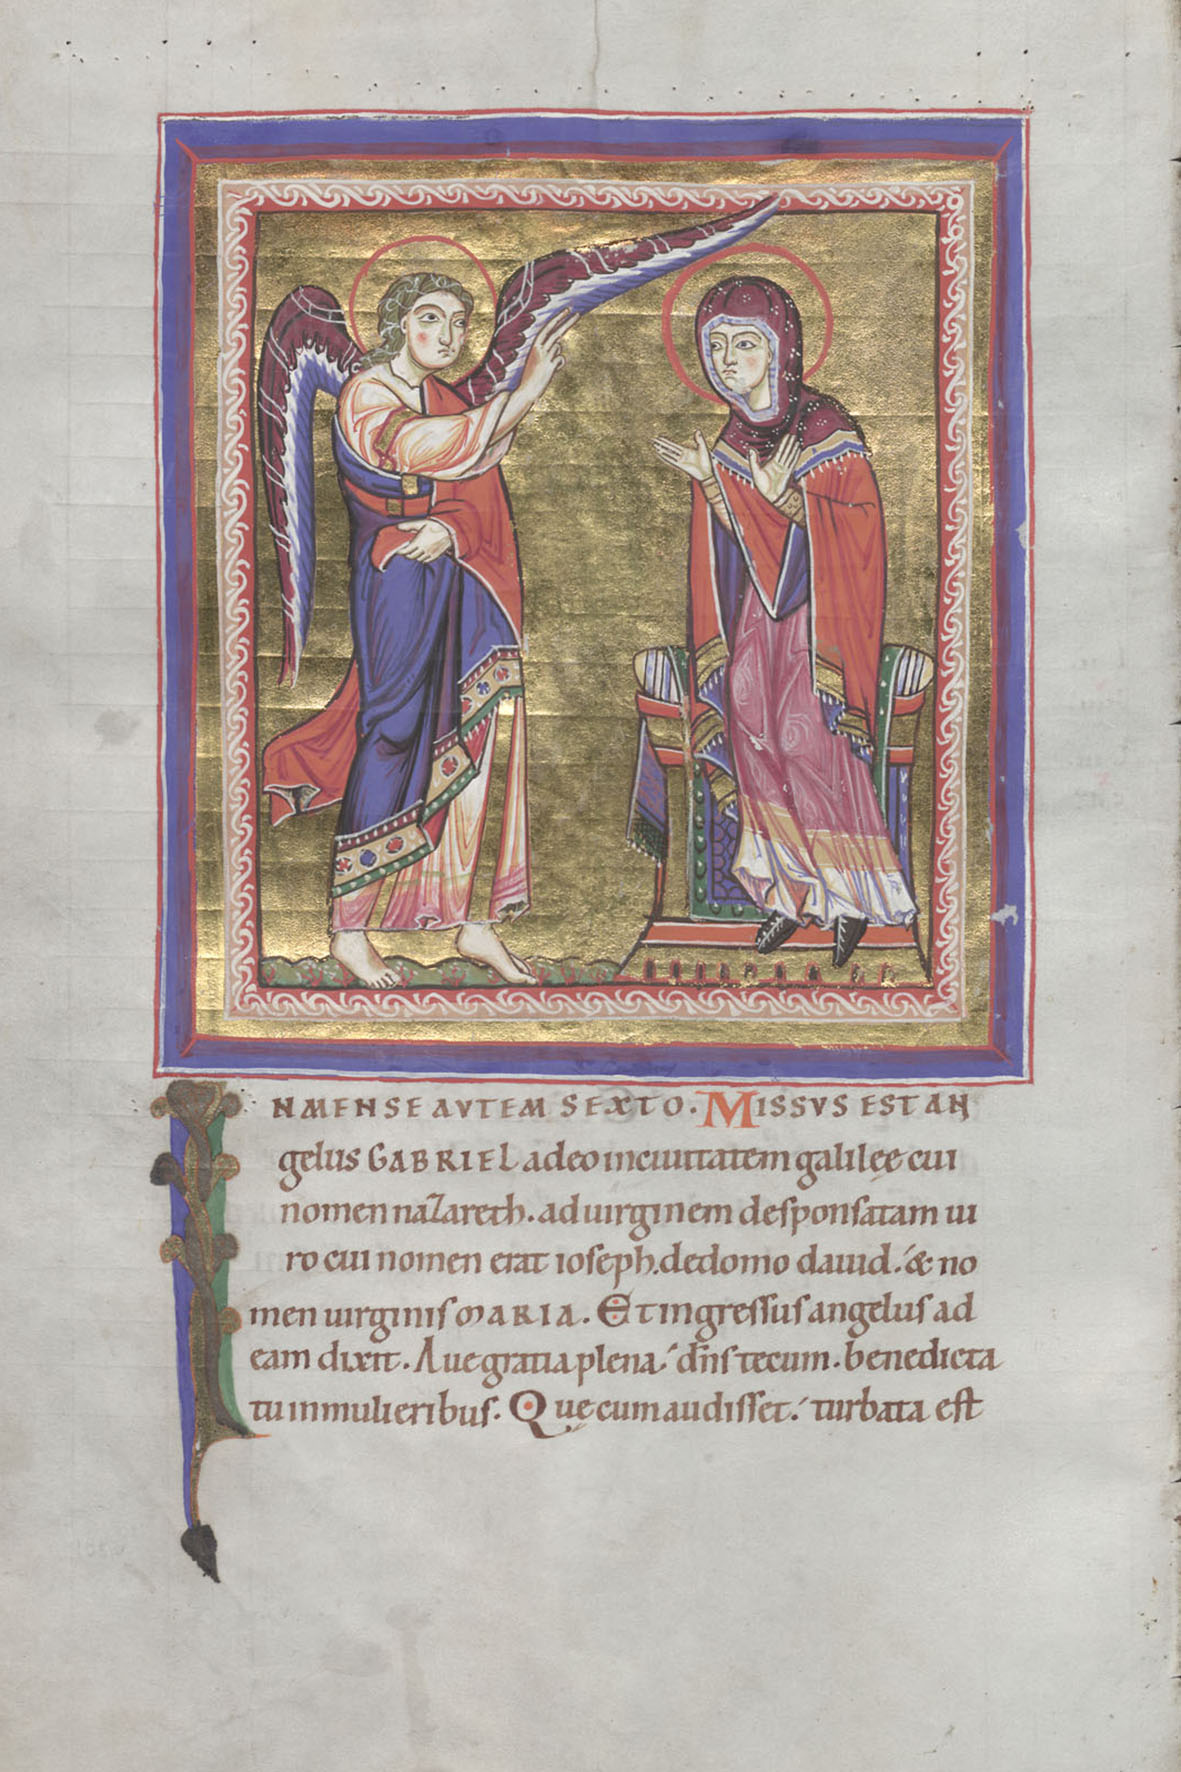 IN MENSE AVTEM SEXTO. MISSVS EST AN
gelus GABRIEL a deo in ciuitatem galilęe cui
nomen nazareth. ad uirginem desponsatam ui
ro cui nomen erat ioseph. de domo dauid. & no
men uirginis MARIA. Et ingressus angelus ad
eam dixit. Aue gratia plena. dn̄s tecum. benedicta
tu in mulieribus. Quę cum audisset. turbata est